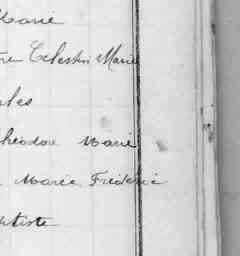 Marie
re Celestin Marie
les
Theodore Marie
Marie Fréderic
ptiste